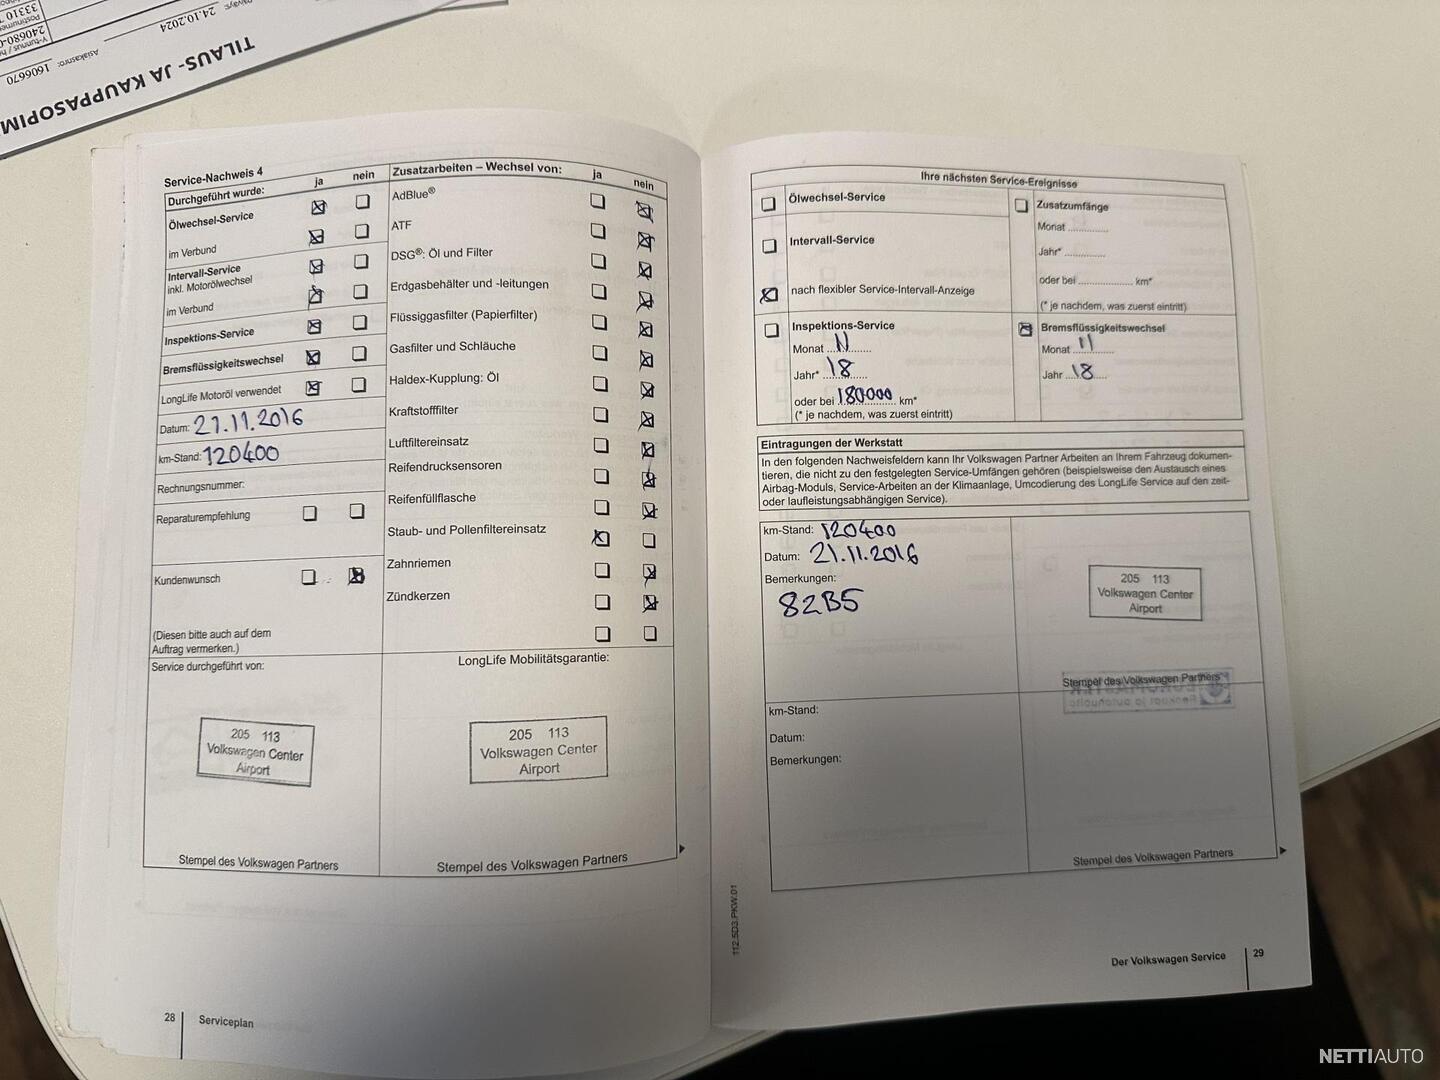 TILAUS- JA KAUPPASOPIM
Asiakasnro: 1606670
24.10.2024
Y-tunnus / h
240680-
Postinumer
33310
Service-Nachweis 4
Durchgeführt wurde: ja nein
Ölwechsel-Service
im Verbund
Intervall-Service
inkl. Motorölwechsel
im Verbund
Inspektions-Service
Bremsflüssigkeitswechsel
LongLife Motoröl verwendet
Datum: 21.11.2016
km-Stand: 120400
Rechnungsnummer:
Reparaturempfehlung
Kundenwunsch
(Diesen bitte auch auf dem
Auftrag vermerken.)
Service durchgeführt von:
205 113
Volkswagen Center
Airport
Stempel des Volkswagen Partners
Zusatzarbeiten – Wechsel von: ja nein
AdBlue®
ATF
DSG®: Öl und Filter
Erdgasbehälter und -leitungen
Flüssiggasfilter (Papierfilter)
Gasfilter und Schläuche
Haldex-Kupplung: Öl
Kraftstofffilter
Luftfiltereinsatz
Reifendrucksensoren
Reifenfüllflasche
Staub- und Pollenfiltereinsatz
Zahnriemen
Zündkerzen
LongLife Mobilitätsgarantie:
205 113
Volkswagen Center
Airport
Stempel des Volkswagen Partners
28 Serviceplan
Ihre nächsten Service-Ereignisse
Ölwechsel-Service
Intervall-Service
nach flexibler Service-Intervall-Anzeige
Inspektions-Service
Monat 11
Jahr* 18
oder bei 180000 km*
(* je nachdem, was zuerst eintritt)
Zusatzumfänge
Monat ............
Jahr* ............
oder bei ................ km*
(* je nachdem, was zuerst eintritt)
Bremsflüssigkeitswechsel
Monat 11
Jahr 18
Eintragungen der Werkstatt
In den folgenden Nachweisfeldern kann Ihr Volkswagen Partner Arbeiten an Ihrem Fahrzeug dokumen-
tieren, die nicht zu den festgelegten Service-Umfängen gehören (beispielsweise den Austausch eines
Airbag-Moduls, Service-Arbeiten an der Klimaanlage, Umcodierung des LongLife Service auf den zeit-
oder laufleistungsabhängigen Service).
km-Stand: 120400
Datum: 21.11.2016
Bemerkungen:
82B5
205 113
Volkswagen Center
Airport
Stempel des Volkswagen Partners
km-Stand:
Datum:
Bemerkungen:
Stempel des Volkswagen Partners
112.5D3.PKW.01
Der Volkswagen Service 29
NETTIAUTO